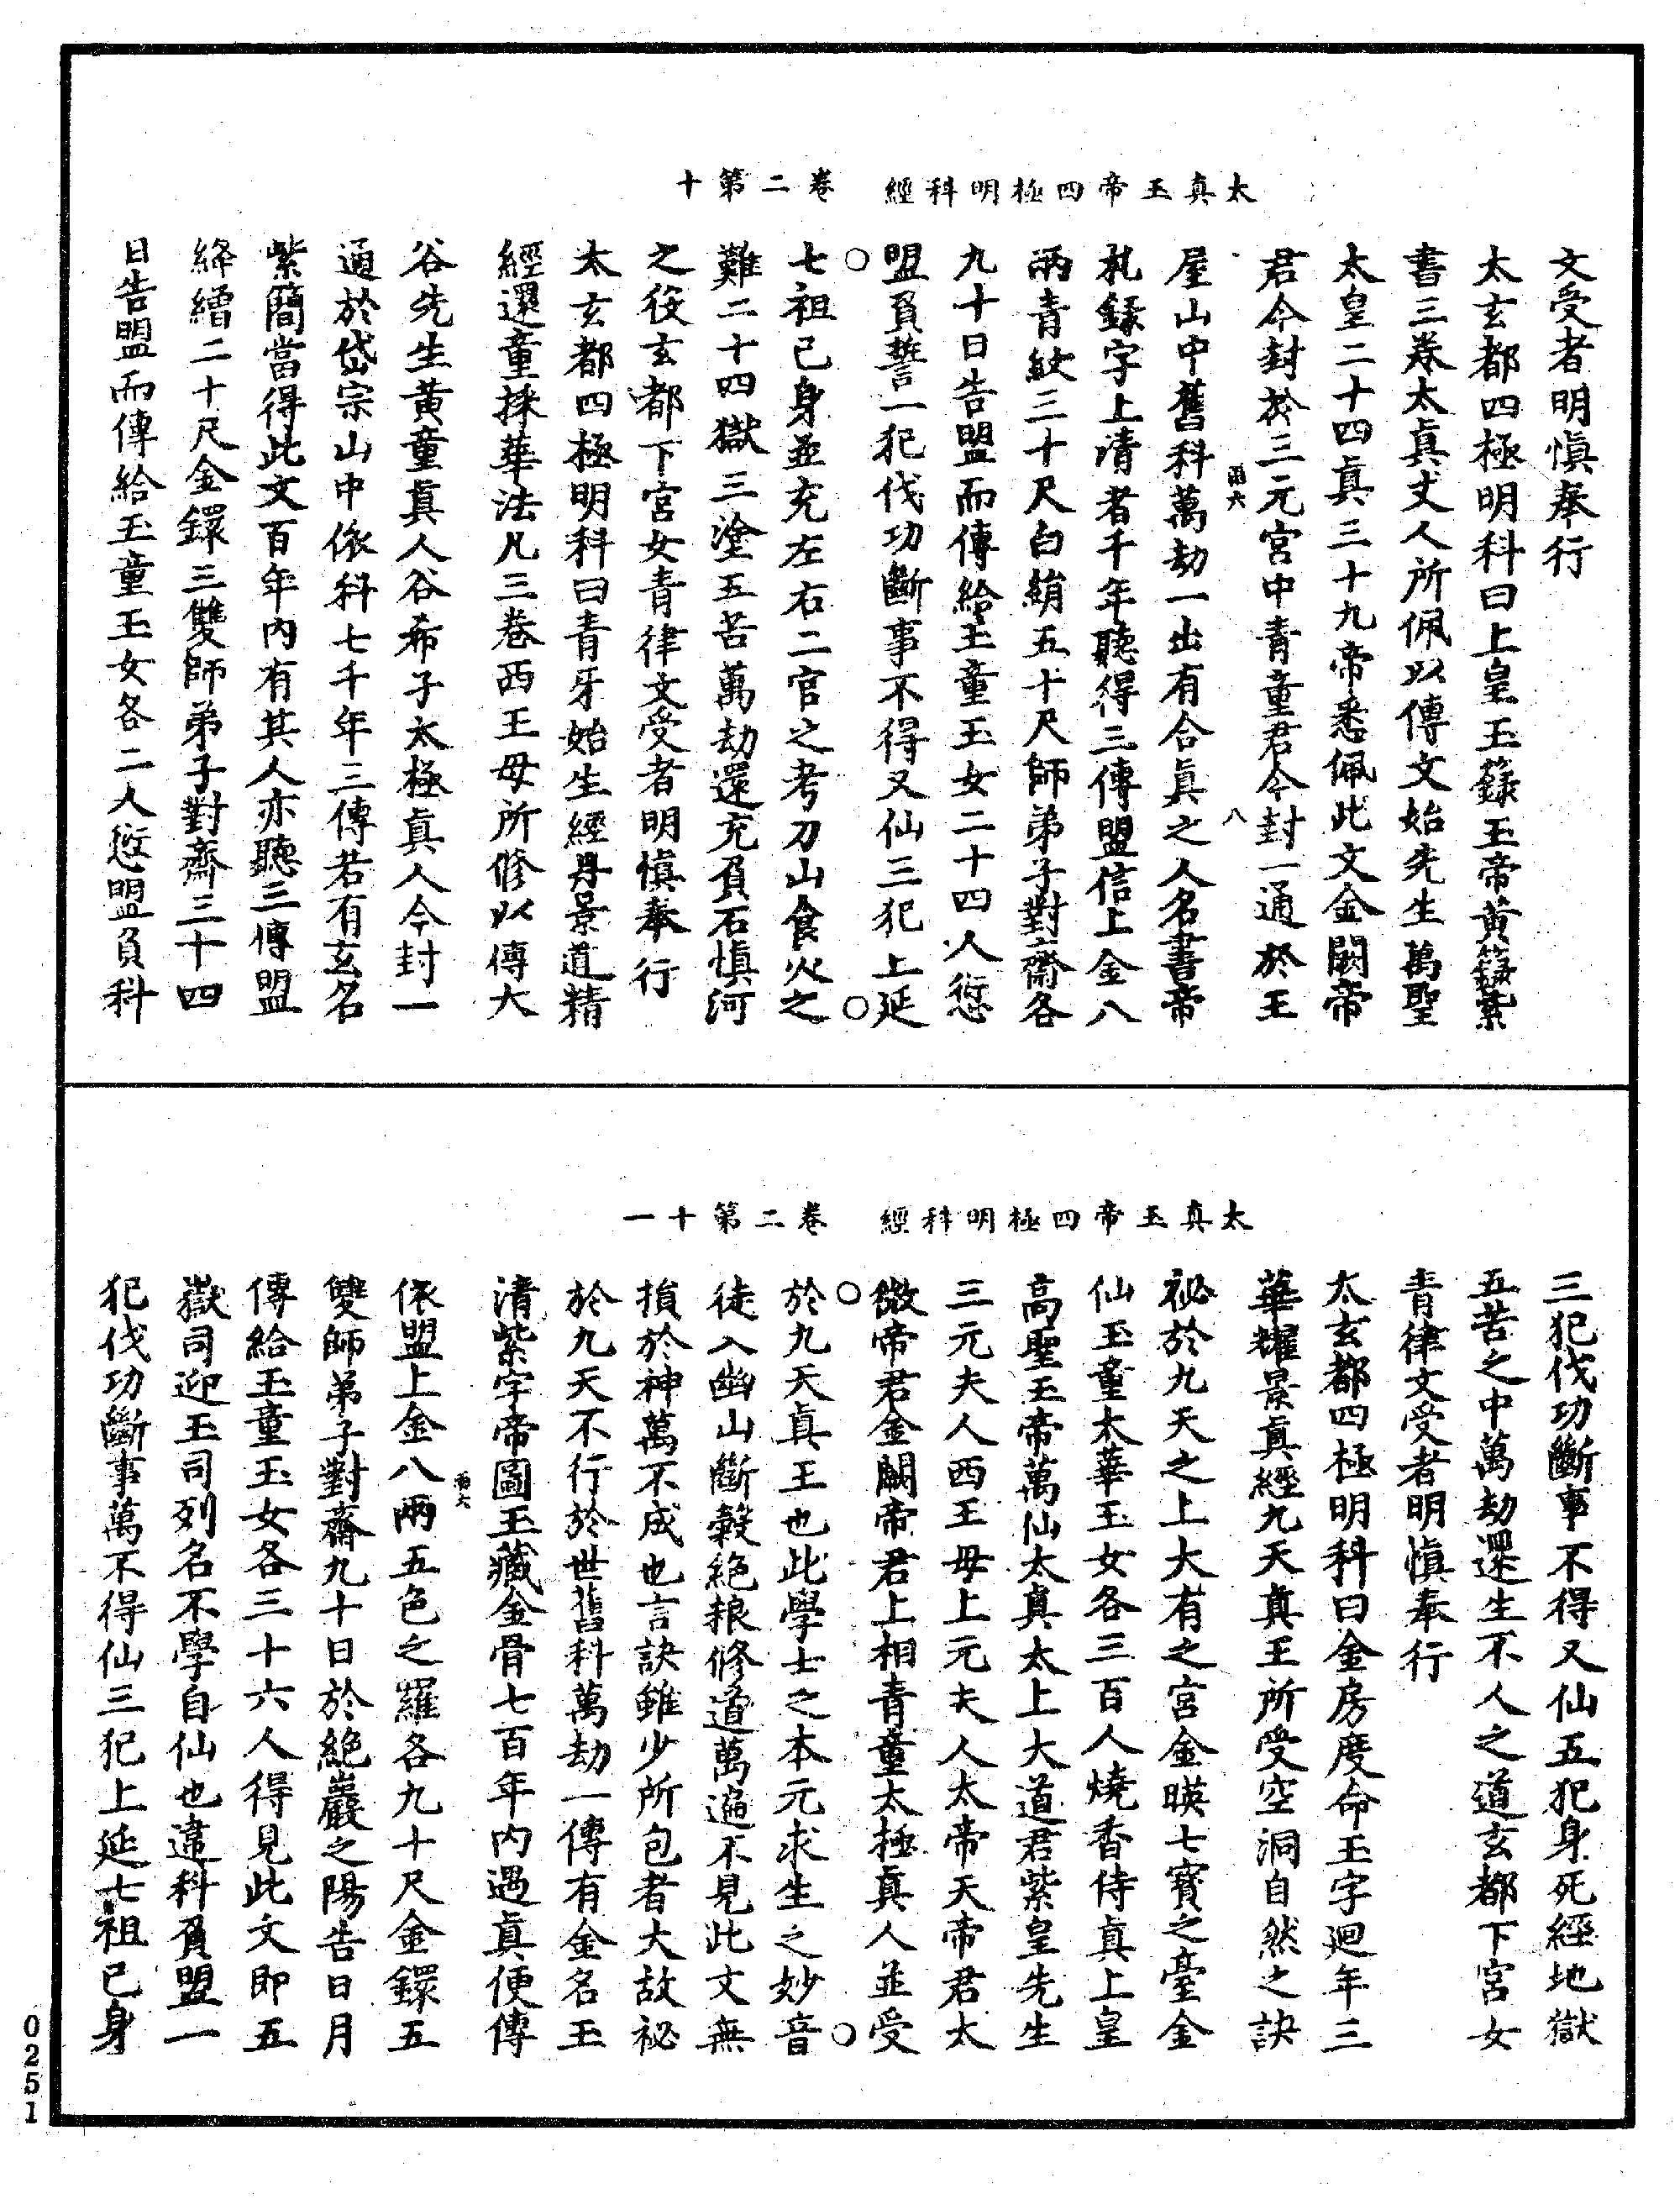 太真玉帝四極明科經　卷二第十
文受者明慎奉行
太玄都四極明科曰上皇玉籙玉帝黃籙紫
書三卷太真丈人所佩以傳文始先生萬聖
太皇二十四真三十九帝悉佩此文金闕帝
君今封於三元宮中青童君今封一通於王
屋山中舊科萬劫一出有合真之人名書帝
札錄字上清者千年聽得三傳盟信上金八
兩青紋三十尺白絹五十尺師弟子對齋各
九十日告盟而傳給玉童玉女二十四人愆
盟負誓一犯伐功斷事不得又仙三犯上延
七祖己身並充左右二官之考刀山食火之
難二十四獄三塗五苦萬劫還充負石慎河
之役玄都下宮女青律文受者明慎奉行
太玄都四極明科曰青牙始生經丹景道精
經還童採華法凡三卷西王母所修以傳大
谷先生黃童真人谷希子太極真人今封一
通於岱宗山中依科七千年三傳若有玄名
紫簡當得此文百年內有其人亦聽三傳盟
絳繒二十尺金鐶三雙師弟子對齋三十四
日告盟而傳給玉童玉女各二人愆盟負科
雨六
八
太真玉帝四極明科經　卷二第十一
三犯伐功斷事不得又仙五犯身死經地獄
五苦之中萬劫還生不人之道玄都下宮女
青律文受者明慎奉行
太玄都四極明科曰金房度命玉字迴年三
華耀景真經九天真王所受空洞自然之訣
祕於九天之上大有之宮金暎七寶之臺金
仙玉童太華玉女各三百人燒香侍真上皇
高聖玉帝萬仙太真太上大道君紫皇先生
三元夫人西王母上元夫人太帝天帝君太
微帝君金闕帝君上相青童太極真人並受
於九天真王也此學士之本元求生之妙音
徒入幽山斷穀絕粮修道萬遍不見此文無
損於神萬不成也言訣雖少所包者大故祕
於九天不行於世舊科萬劫一傳有金名玉
清紫字帝圖玉藏金骨七百年內遇真便傳
依盟上金八兩五色之羅各九十尺金鐶五
雙師弟子對齋九十日於絕巖之陽告日月
傳給玉童玉女各三十六人得見此文即五
嶽司迎玉司列名不學自仙也違科負盟一
犯伐功斷事萬不得仙三犯上延七祖己身
雨六
0251